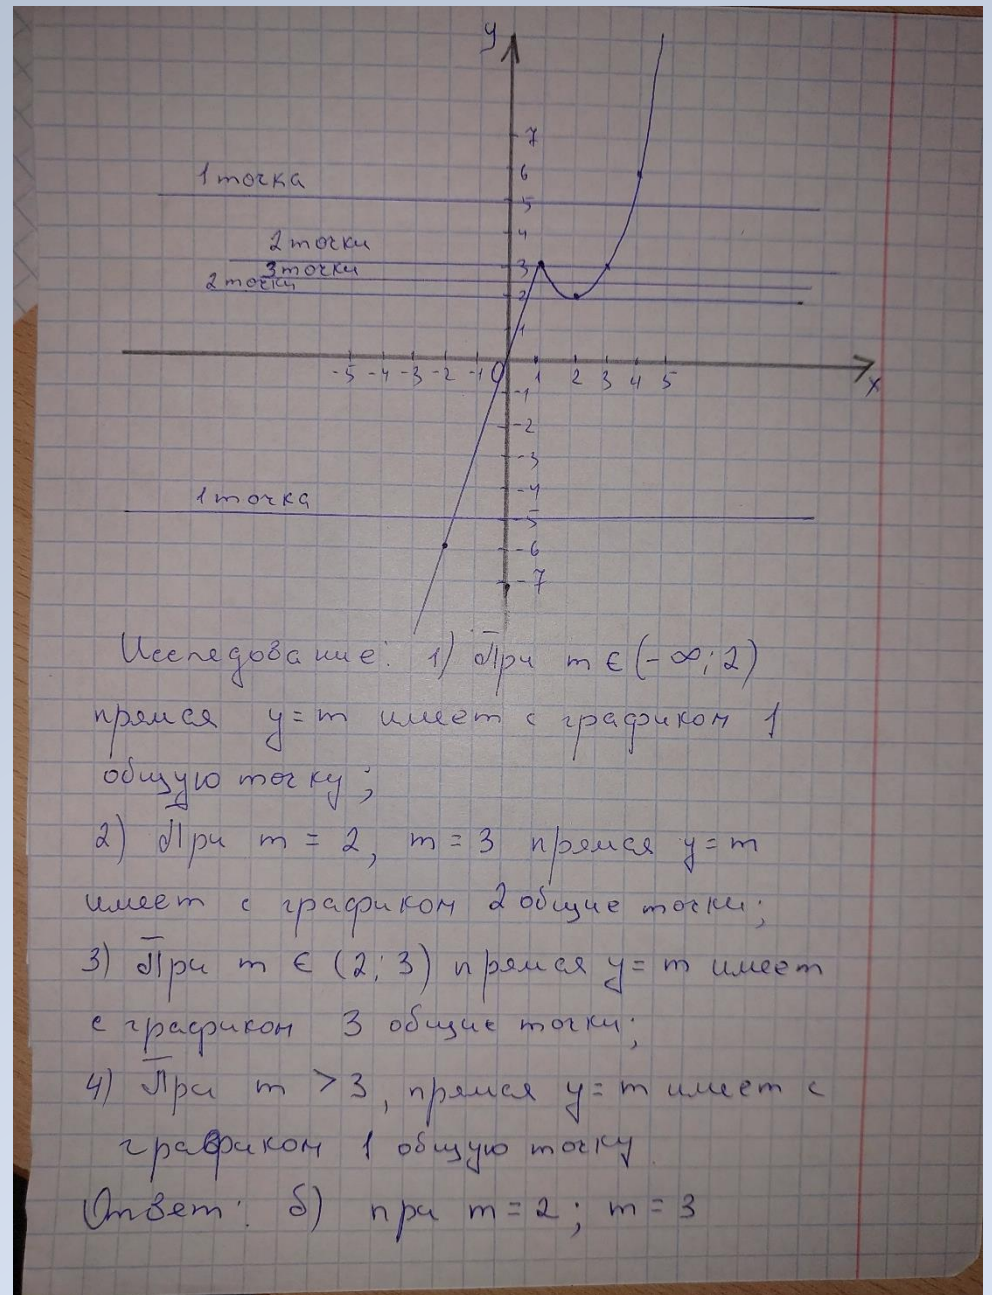 y
7
1 точка
6
5
4
2 точки
3
3 точки
2 точки
2
1
-5 -4 -3 -2 -1 0 1 2 3 4 5
x
-1
-2
-3
-4
1 точка
5
-6
-7
Исследование: 1) При m ∈ (-∞; 2)
прямая y = m имеет с графиком 1
общую точку;
2) При m = 2, m = 3 прямая y = m
имеет с графиком 2 общие точки;
3) При m ∈ (2; 3) прямая y = m имеет
с графикон 3 общие точки;
4) При m > 3, прямая y = m имеет с
графиком 1 общую точку
Ответ: б) при m = 2; m = 3